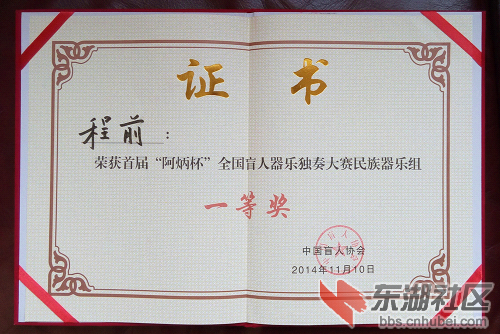 证书
程前：
荣获首届“阿炳杯”全国盲人器乐独奏大赛民族器乐组
一等奖
中国盲人协会
2014年11月10日
东湖社区
bbs.cnhubei.com